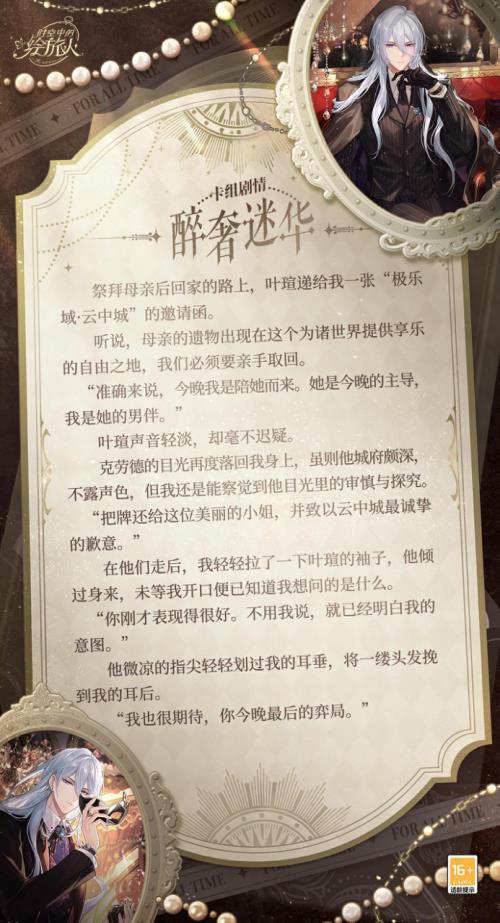 时空中的
绘旅人
FOR ALL TIME
FOR ALL TIME
TIME
卡组剧情
醉奢迷华
祭拜母亲后回家的路上，叶瑄递给我一张“极乐
域·云中城”的邀请函。
听说，母亲的遗物出现在这个为诸世界提供享乐
的自由之地，我们必须要亲手取回。
“准确来说，今晚我是陪她而来。她是今晚的主导，
我是她的男伴。”
叶瑄声音轻淡，却毫不迟疑。
克劳德的目光再度落回我身上，虽则他城府颇深，
不露声色，但我还是能察觉到他目光里的审慎与探究。
“把牌还给这位美丽的小姐，并致以云中城最诚挚
的歉意。”
在他们走后，我轻轻拉了一下叶瑄的袖子，他倾
过身来，未等我开口便已知道我想问的是什么。
“你刚才表现得很好。不用我说，就已经明白我的
意图。”
他微凉的指尖轻轻划过我的耳垂，将一缕头发挽
到我的耳后。
“我也很期待，你今晚最后的弈局。”
FOR ALL TIME
TIME
16+
适龄提示